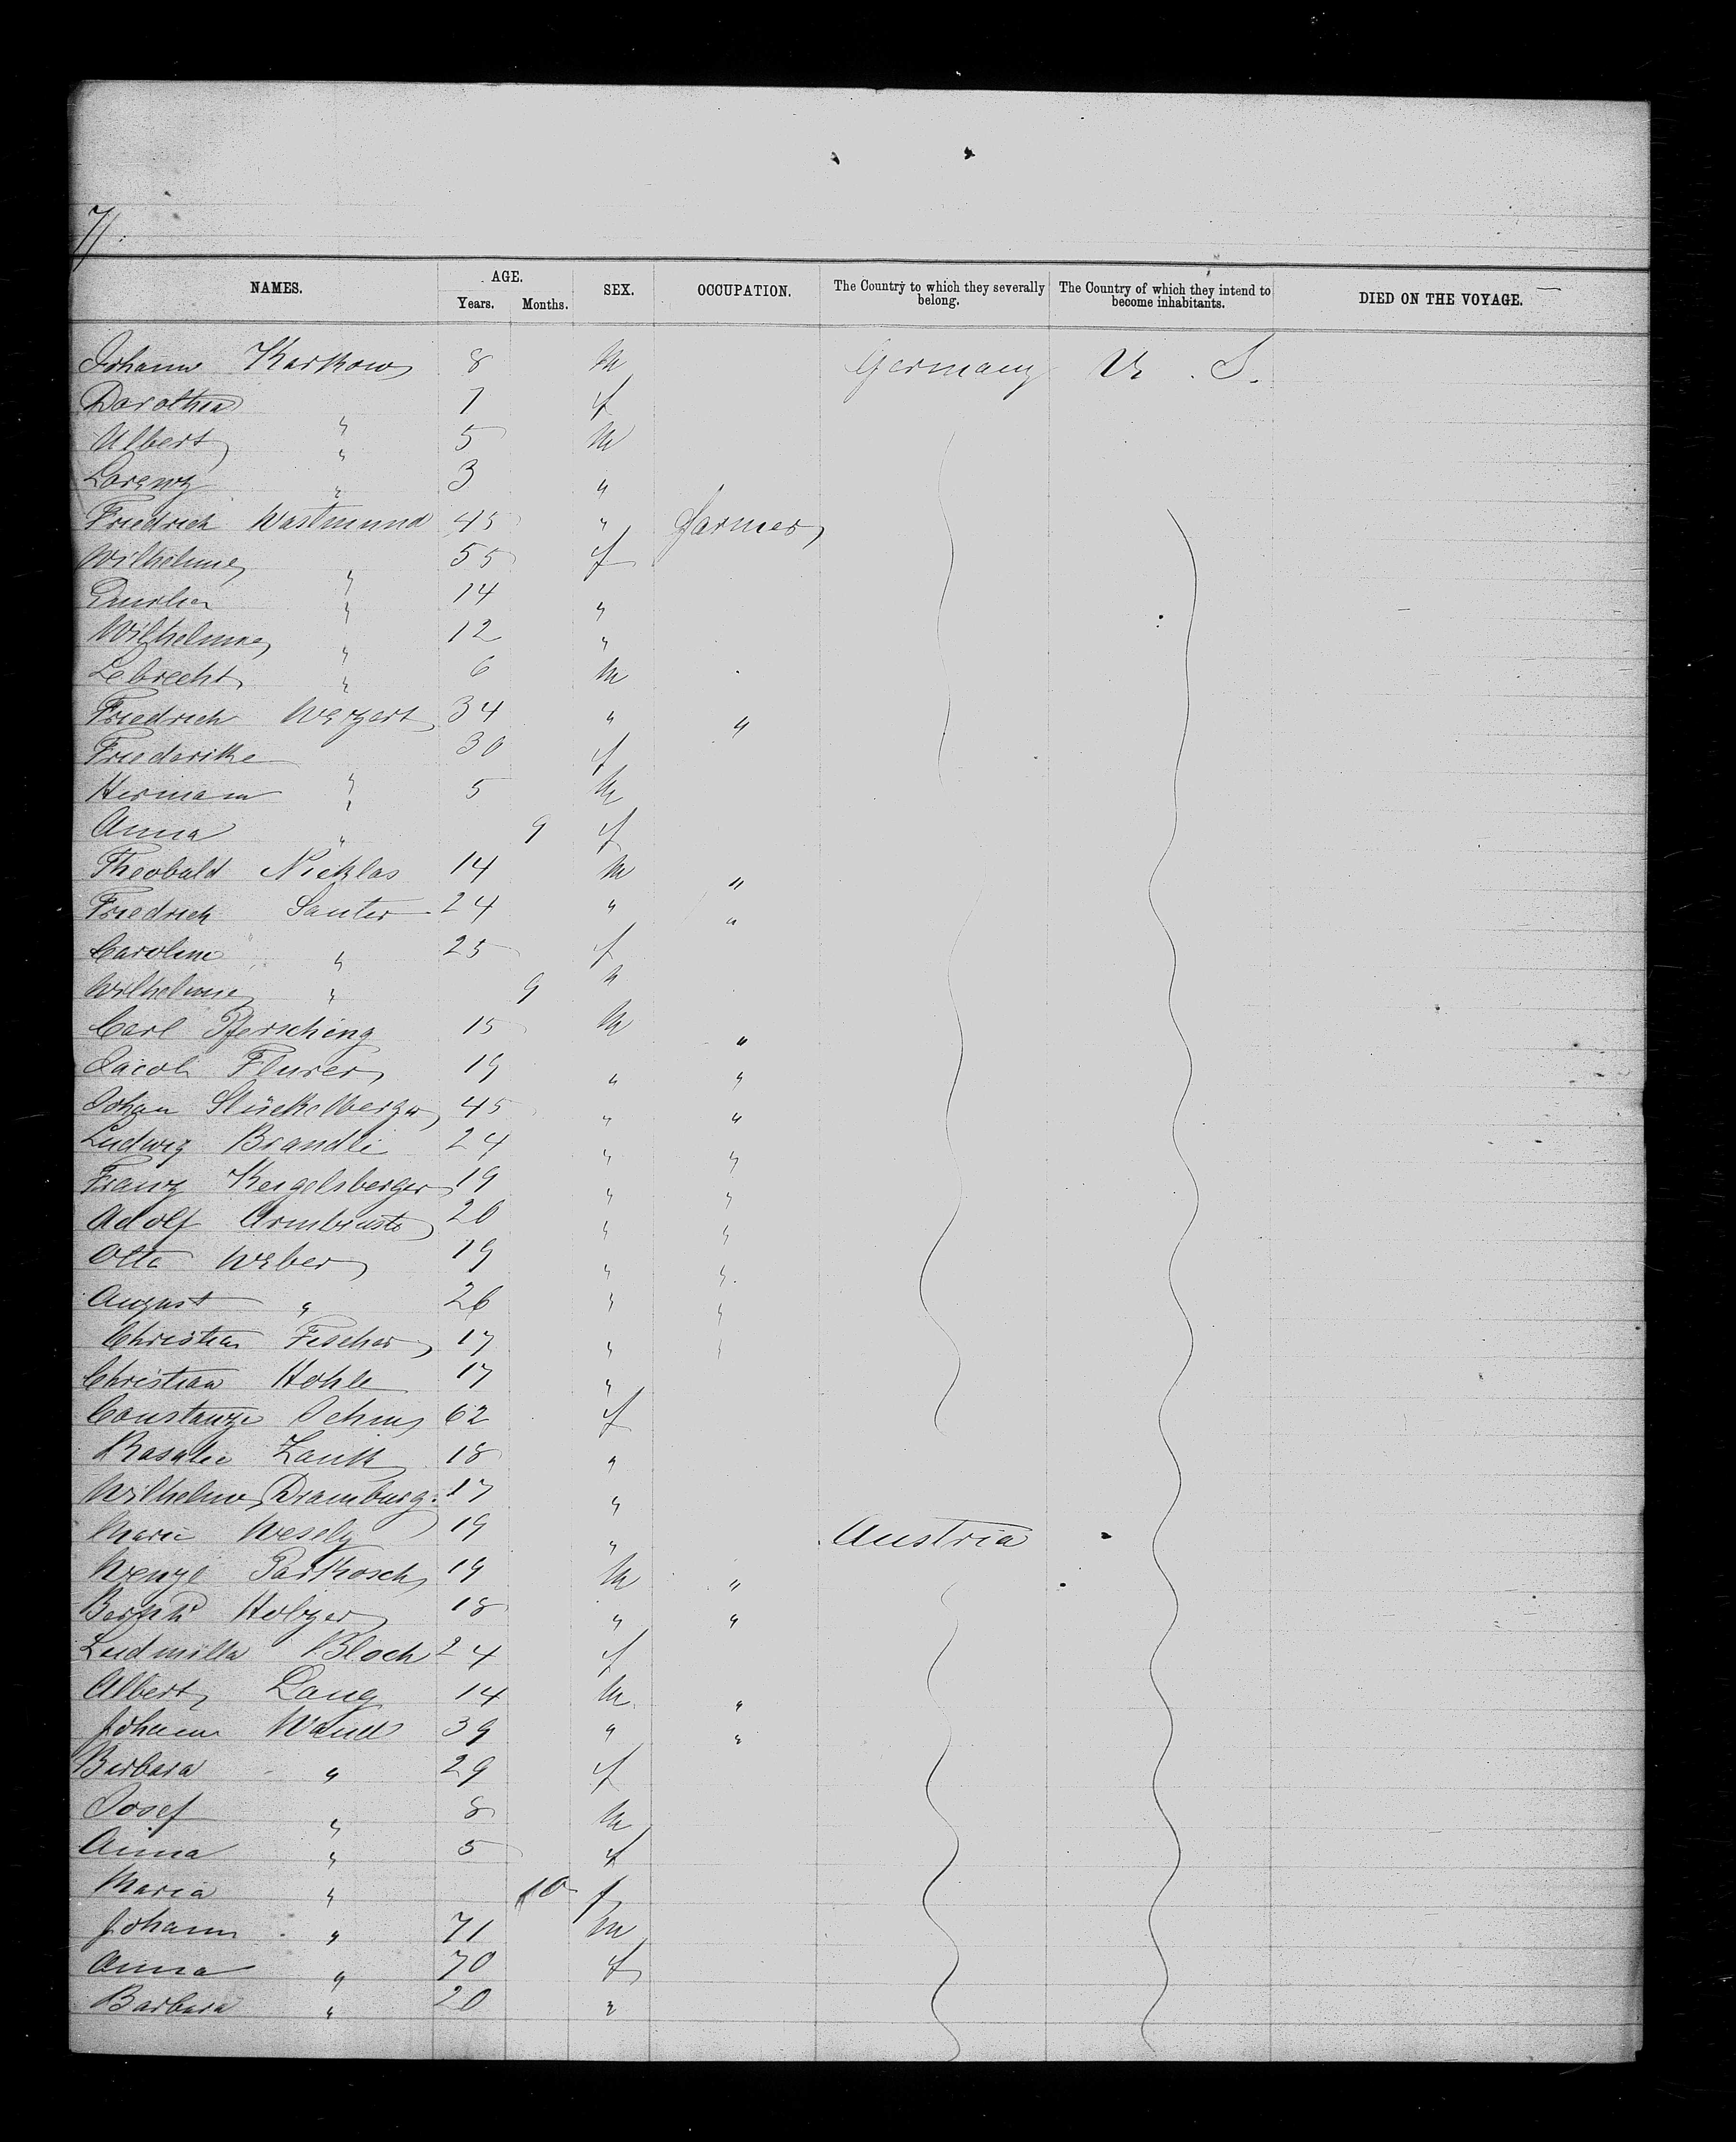 7.
NAMES. AGE. SEX. OCCUPATION. The Country to which they severally belong. The Country of which they intend to become inhabitants. DIED ON THE VOYAGE.
Years. Months.
Johann Karkow 8 m Germany U. S.
Dorothea " 7 f
Albert " 5 m
Lorenz " 3 "
Friedrich Wastmund 45 " farmer
Wilhelmine " 55 f
Emilie " 14 "
Wilhelmine " 12 "
Lebrecht " 6 m
Friedrich Wezert 34 " "
Friederike " 30 f
Hermann " 5 m
Anna " 9 f
Theobald Nicklas 14 m "
Friedrich Sauter 24 " "
Caroline " 25 f
Wilhelmine " 9 "
Carl Pfersching 15 m "
Jacob Flurer 19 " "
Johan Stückelberger 45 " "
Ludwig Brandli 24 " "
Franz Keigelsberger 19 " "
Adolf Armbruste 20 " "
Otto Weber 19 " "
August " 26 " "
Christian Fischer 17 " "
Christian Hohle 17 "
Constanze 62 f
Rosalie Zank 18 "
Wilhelmine Dramburg 17 "
Marie Wesely 19 " Austria
Wenzl Parkosch 19 m "
Holzer 18 " "
Ludmilla Bloch 24 f
Albert Lang 14 m "
Johann Wand 39 " "
Barbara " 29 f
Josef " 8 m
Anna " 5 f
Maria " 10 f
Johann " 71 m
Anna " 70 f
Barbara " 20 "